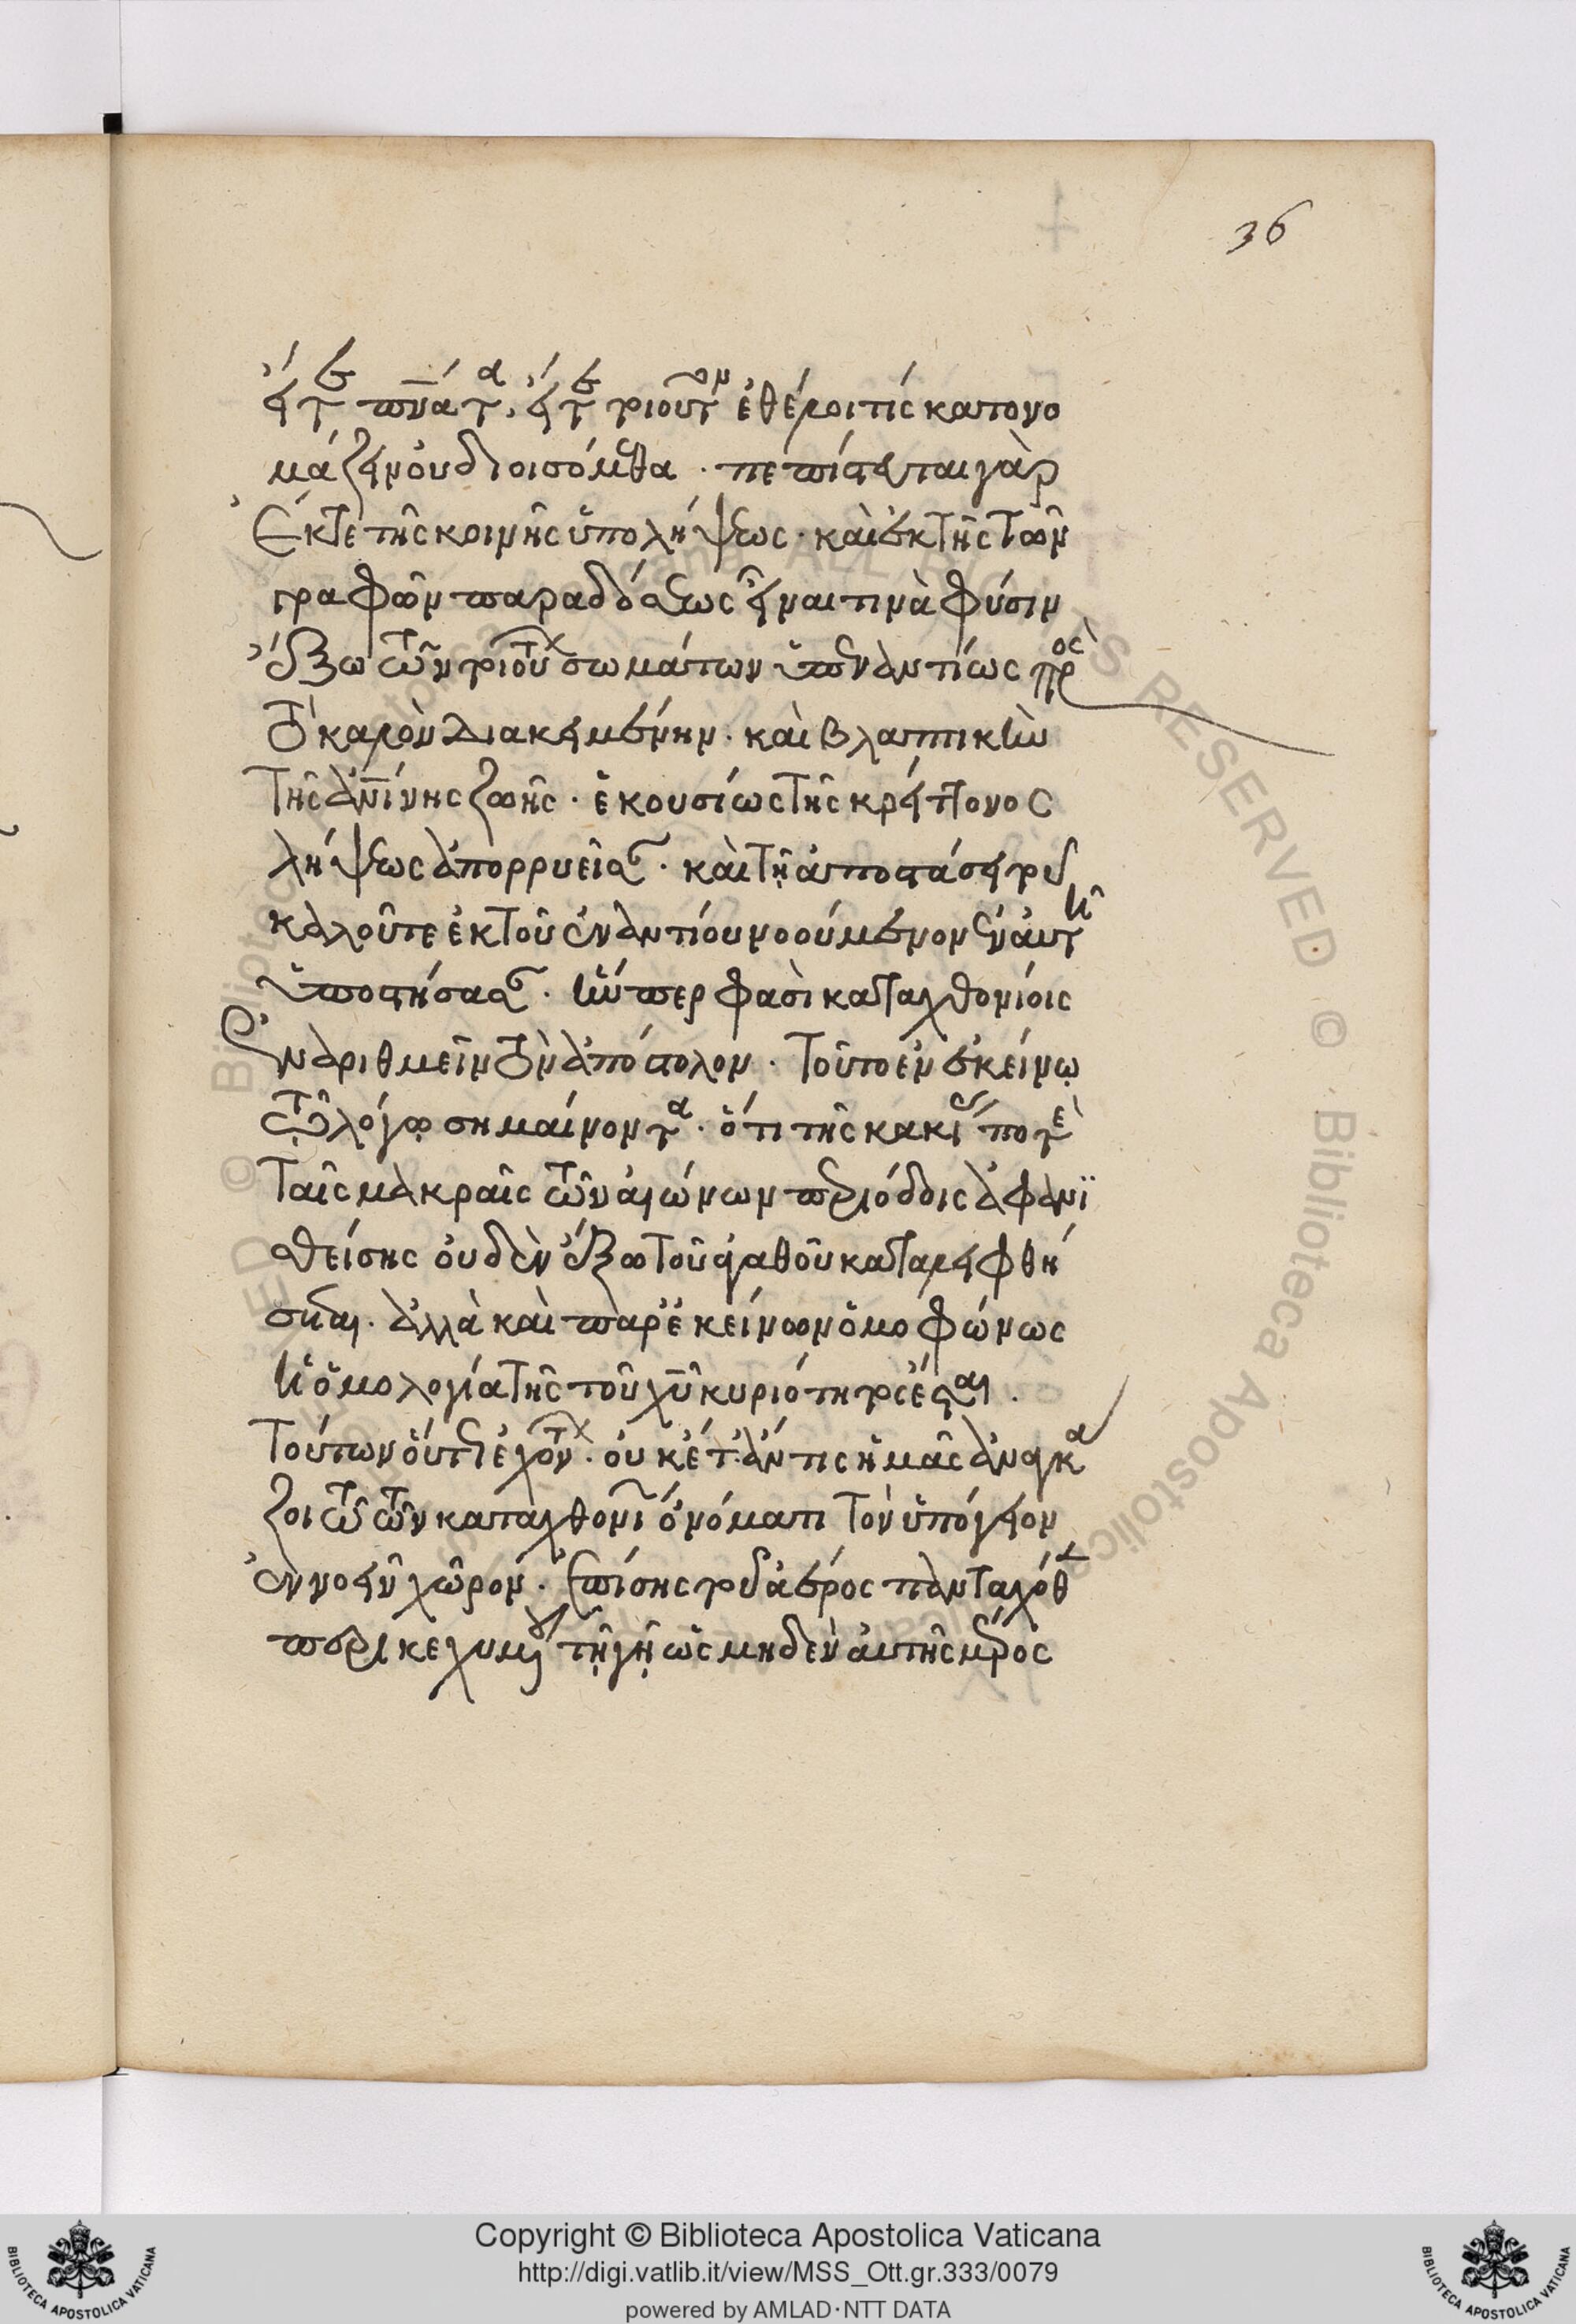 36
εἴτε πνεύματα, εἴτε τι τοιοῦτον ἐθέλοι τίς κατονο
μάζειν οὐ διοισόμεθα · πεπίστευται γὰρ
Ἔκ τε τῆς κοινῆς ὑπολήψεως · καὶ ἐκ τῆς τῶν
γραφῶν παραδόσεως εἶναι τινὰ φύσιν
ἔξω τῶν τοιούτων σωμάτων ὑπεναντίως πρὸς
τὸ καλὸν διακειμένην · καὶ βλαπτικὴν
τῆς ἀνίνης ζωῆς · ἑκουσίως τῆς κρείττονος
λήψεως ἀπορρυεῖσαν · καὶ τῇ ἀποστάσει τοῦ
καλοῦ τε ἐκ τοῦ ἐναντίου νοούμενον ἐν αὐτῇ
ὑποστήσασαν · ἥνπερ φασὶ καταχθονίοις
Ἐναριθμεῖν τὸν ἀπόστολον · τοῦτο ἐν ἐκείνῳ
τῷ λόγῳ σημαίνοντα · ὅτι τῆς κακίας ποτὲ
ταῖς μακραῖς τῶν αἰώνων περιόδοις ἀφανι
σθείσης οὐδὲν ἔξω τοῦ ἀγαθοῦ καταλειφθή
σεται · ἀλλὰ καὶ παρ' ἐκείνων ὁμοφώνως
ἡ ὁμολογία τῆς τοῦ χῦ κυριότητος ἔσται ·
Τούτων οὕτως ἐχόντων · οὐκέτ' ἄν τις ἡμᾶς ἀναγκά
ζοι τῷ τῶν καταχθονίων ὀνόματι τὸν ὑπόγειον
ἐννοεῖν χῶρον · ἐπίσης τοῦ ἀέρος πανταχόθεν
περικεχυμένου τῇ γῇ ὡς μηδὲν αὐτῆς μέρος
Copyright © Biblioteca Apostolica Vaticana
http://digi.vatlib.it/view/MSS_Ott.gr.333/0079
powered by AMLAD·NTT DATA